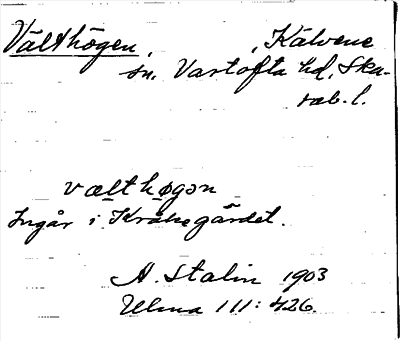 Välthögen, , Kälvene
sn. Vartofta hd, Ska-
rab. l.
vælthøgən
Ingår i Kråkegärdet.
A. Stalin 1903
Ulma 111: 426.